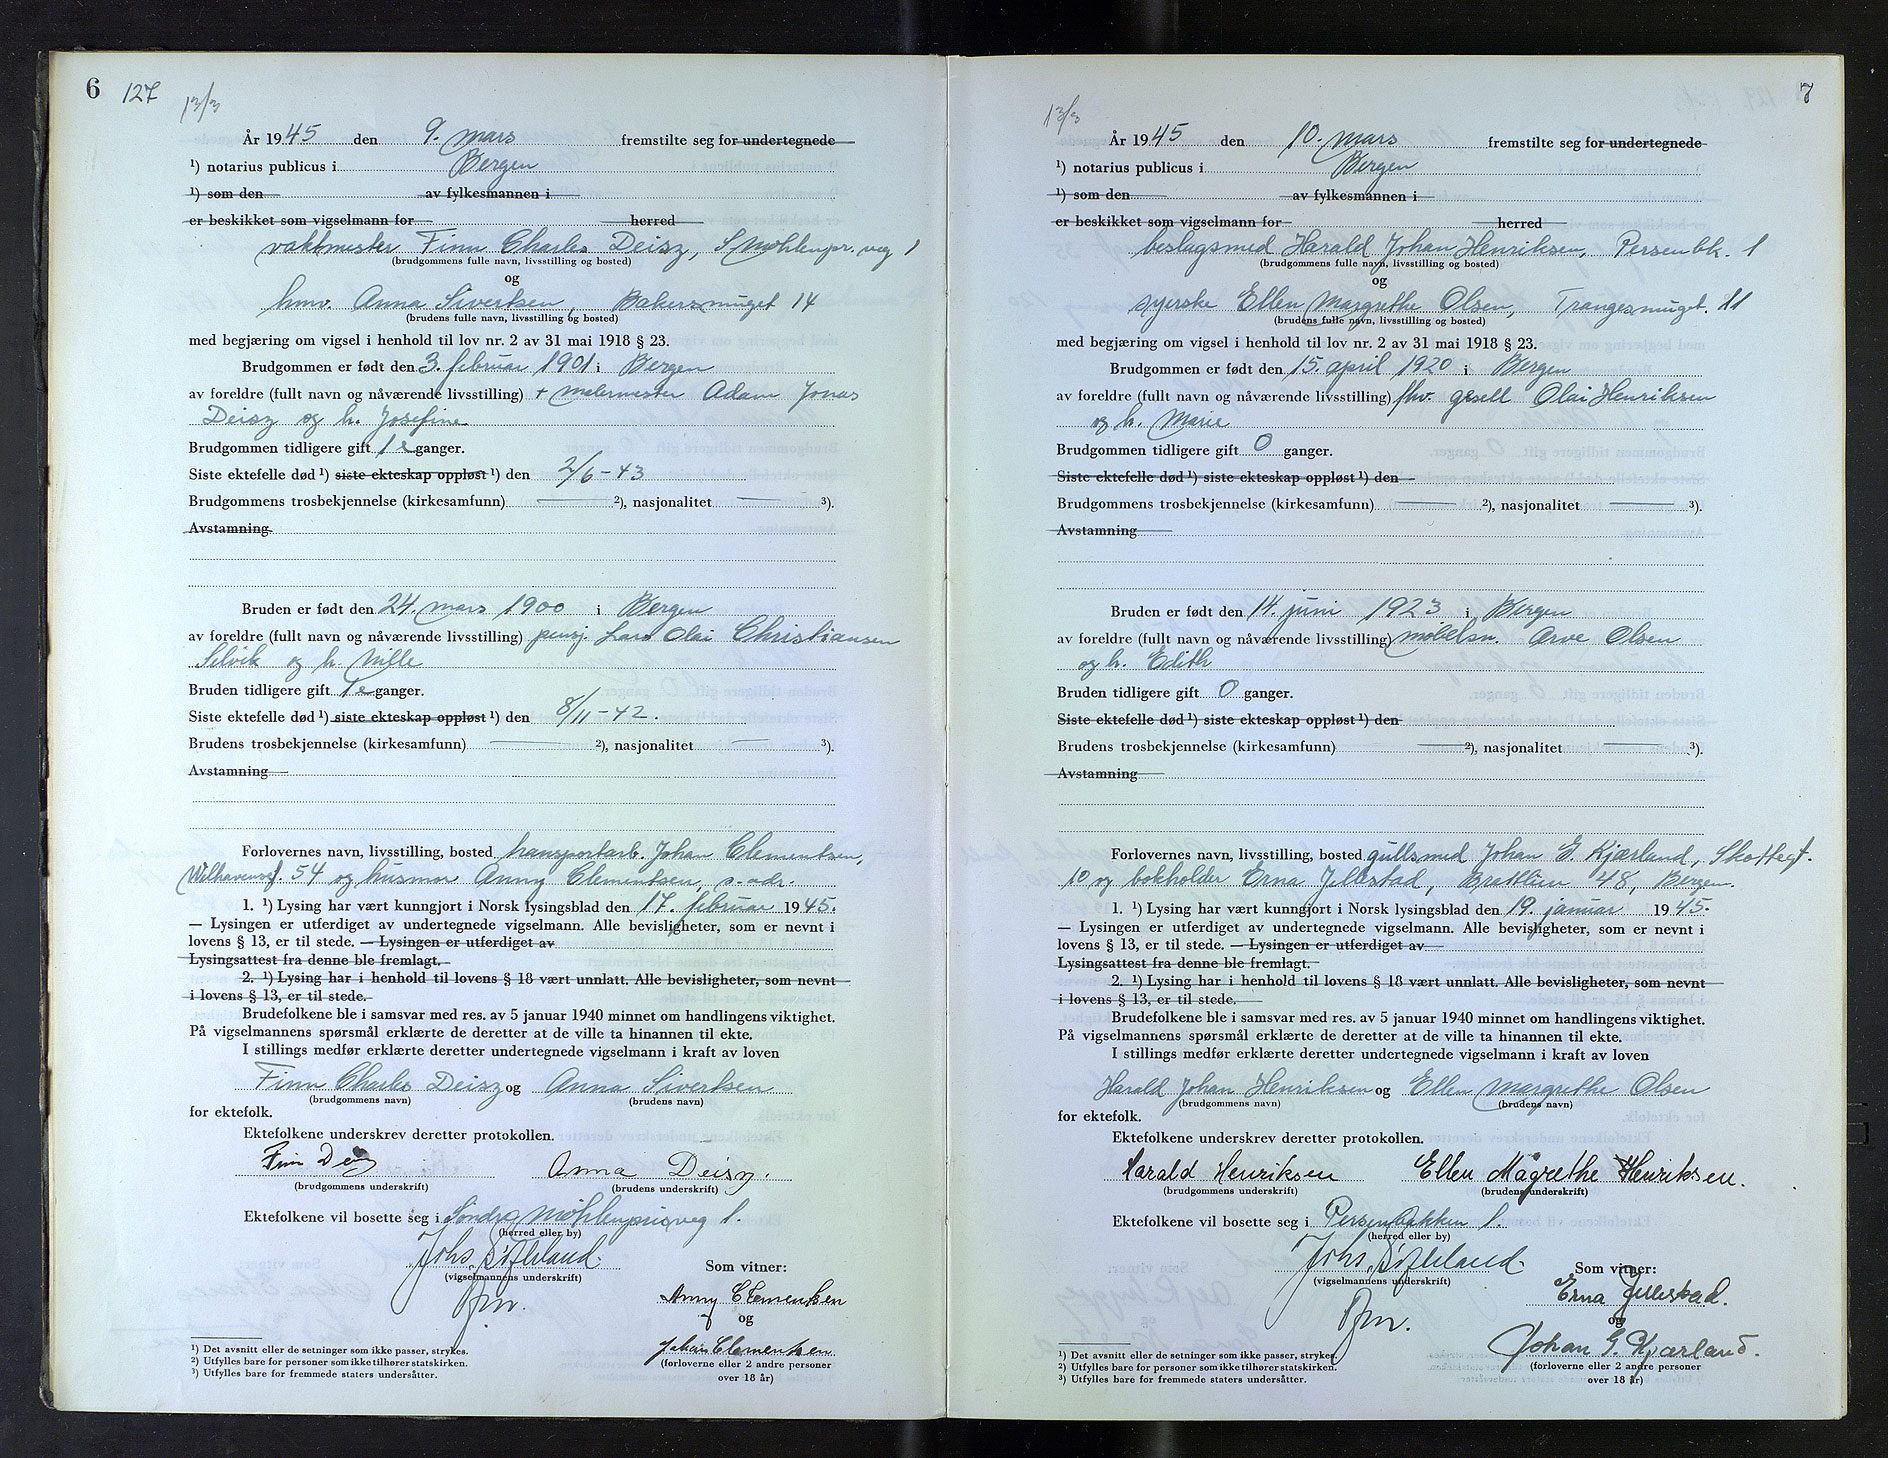 6 127
13/3
År 1945 den 9. mars fremstilte seg for undertegnede
¹) notarius publicus i Bergen
¹) som den av fylkesmannen i
er beskikket som vigselmann for herred
vaktmester Finn Charles Deisz, S. Møhlenpr. veg 1
(brudgommens fulle navn, livsstilling og bosted)
og
hmv. Anna Sivertsen, Bakersmuget 14
(brudens fulle navn, livsstilling og bosted)
med begjæring om vigsel i henhold til lov nr. 2 av 31 mai 1918 § 23.
Brudgommen er født den 3. februar 1901 i Bergen
av foreldre (fullt navn og nåværende livsstilling) + malermester Adam Jonas
Deisz og h. Josefine
Brudgommen tidligere gift 1 ganger.
Siste ektefelle død ¹) siste ekteskap oppløst ¹) den 2/6-43
Brudgommens trosbekjennelse (kirkesamfunn) ²), nasjonalitet ³).
Avstamning
Bruden er født den 24. mars 1900 i Bergen
av foreldre (fullt navn og nåværende livsstilling) pensj. Lars Olai Christiansen
Selvik og h. Nille
Bruden tidligere gift 1 ganger.
Siste ektefelle død ¹) siste ekteskap oppløst ¹) den 8/11-42.
Brudens trosbekjennelse (kirkesamfunn) ²), nasjonalitet ³).
Avstamning
Forlovernes navn, livsstilling, bosted transportarb. Johan Clementsen,
54 og husmor Anny Clementsen, s. adr.
1. ¹) Lysing har vært kunngjort i Norsk lysingsblad den 17. februar 1945.
— Lysingen er utferdiget av undertegnede vigselmann. Alle bevisligheter, som er nevnt i
lovens § 13, er til stede. — Lysingen er utferdiget av
Lysingsattest fra denne ble fremlagt.
2. ¹) Lysing har i henhold til lovens § 18 vært unnlatt. Alle bevisligheter, som nevnt
i lovens § 13, er til stede.
Brudefolkene ble i samsvar med res. av 5 januar 1940 minnet om handlingens viktighet.
På vigselmannens spørsmål erklærte de deretter at de ville ta hinannen til ekte.
I stillings medfør erklærte deretter undertegnede vigselmann i kraft av loven
Finn Charles Deisz og Anna Sivertsen
(brudgommens navn) (brudens navn)
for ektefolk.
Ektefolkene underskrev deretter protokollen.
Finn Anna Deisz.
(brudgommens underskrift) (brudens underskrift)
Ektefolkene vil bosette seg i Søndre Møhlenprisveg 1.
(herred eller by)
Johs.
(vigselmannens underskrift)
Som vitner:
Anny Clementsen
og
Johan Clementsen.
(forloverne eller 2 andre personer
over 18 år)
¹) Det avsnitt eller de setninger som ikke passer, strykes.
²) Utfylles bare for personer som ikke tilhører statskirken.
³) Utfylles bare for fremmede staters undersåtter.
7
13/3
År 1945 den 10. mars fremstilte seg for undertegnede
¹) notarius publicus i Bergen
¹) som den av fylkesmannen i
er beskikket som vigselmann for herred
beslagsmed Harald Johan Henriksen, Persenbk. 1
(brudgommens fulle navn, livsstilling og bosted)
og
syerske Ellen Margrethe Olsen, Trangesmuget. 11
(brudens fulle navn, livsstilling og bosted)
med begjæring om vigsel i henhold til lov nr. 2 av 31 mai 1918 § 23.
Brudgommen er født den 15. april 1920 i Bergen
av foreldre (fullt navn og nåværende livsstilling) fhv. gsell Olai Henriksen
og h. Marie
Brudgommen tidligere gift 0 ganger.
Siste ektefelle død ¹) siste ekteskap oppløst ¹) den
Brudgommens trosbekjennelse (kirkesamfunn) ²), nasjonalitet ³).
Avstamning
Bruden er født den 14. juni 1923 i Bergen
av foreldre (fullt navn og nåværende livsstilling) møbelsn. Arve Olsen
og h. Edith
Bruden tidligere gift 0 ganger.
Siste ektefelle død ¹) siste ekteskap oppløst ¹) den
Brudens trosbekjennelse (kirkesamfunn) ²), nasjonalitet ³).
Avstamning
Forlovernes navn, livsstilling, bosted gullsmed Johan G. Kjærland, Skottegt.
10 og bokholder Erna Jellestad, Brattlien 48, Bergen.
1. ¹) Lysing har vært kunngjort i Norsk lysingsblad den 19. januar 1945.
— Lysingen er utferdiget av undertegnede vigselmann. Alle bevisligheter, som er nevnt i
lovens § 13, er til stede. — Lysingen er utferdiget av
Lysingsattest fra denne ble fremlagt.
2. ¹) Lysing har i henhold til lovens § 18 vært unnlatt. Alle bevisligheter, som nevnt
i lovens § 13, er til stede.
Brudefolkene ble i samsvar med res. av 5 januar 1940 minnet om handlingens viktighet.
På vigselmannens spørsmål erklærte de deretter at de ville ta hinannen til ekte.
I stillings medfør erklærte deretter undertegnede vigselmann i kraft av loven
Harald Johan Henriksen og Ellen Margrethe Olsen
(brudgommens navn) (brudens navn)
for ektefolk.
Ektefolkene underskrev deretter protokollen.
Harald Henriksen Ellen Magrethe Henriksen.
(brudgommens underskrift) (brudens underskrift)
Ektefolkene vil bosette seg i Persenbakken 1.
(herred eller by)
Johs.
(vigselmannens underskrift)
Som vitner:
Erna Jellestad.
og
Johan G. Kjærland.
(forloverne eller 2 andre personer
over 18 år)
¹) Det avsnitt eller de setninger som ikke passer, strykes.
²) Utfylles bare for personer som ikke tilhører statskirken.
³) Utfylles bare for fremmede staters undersåtter.